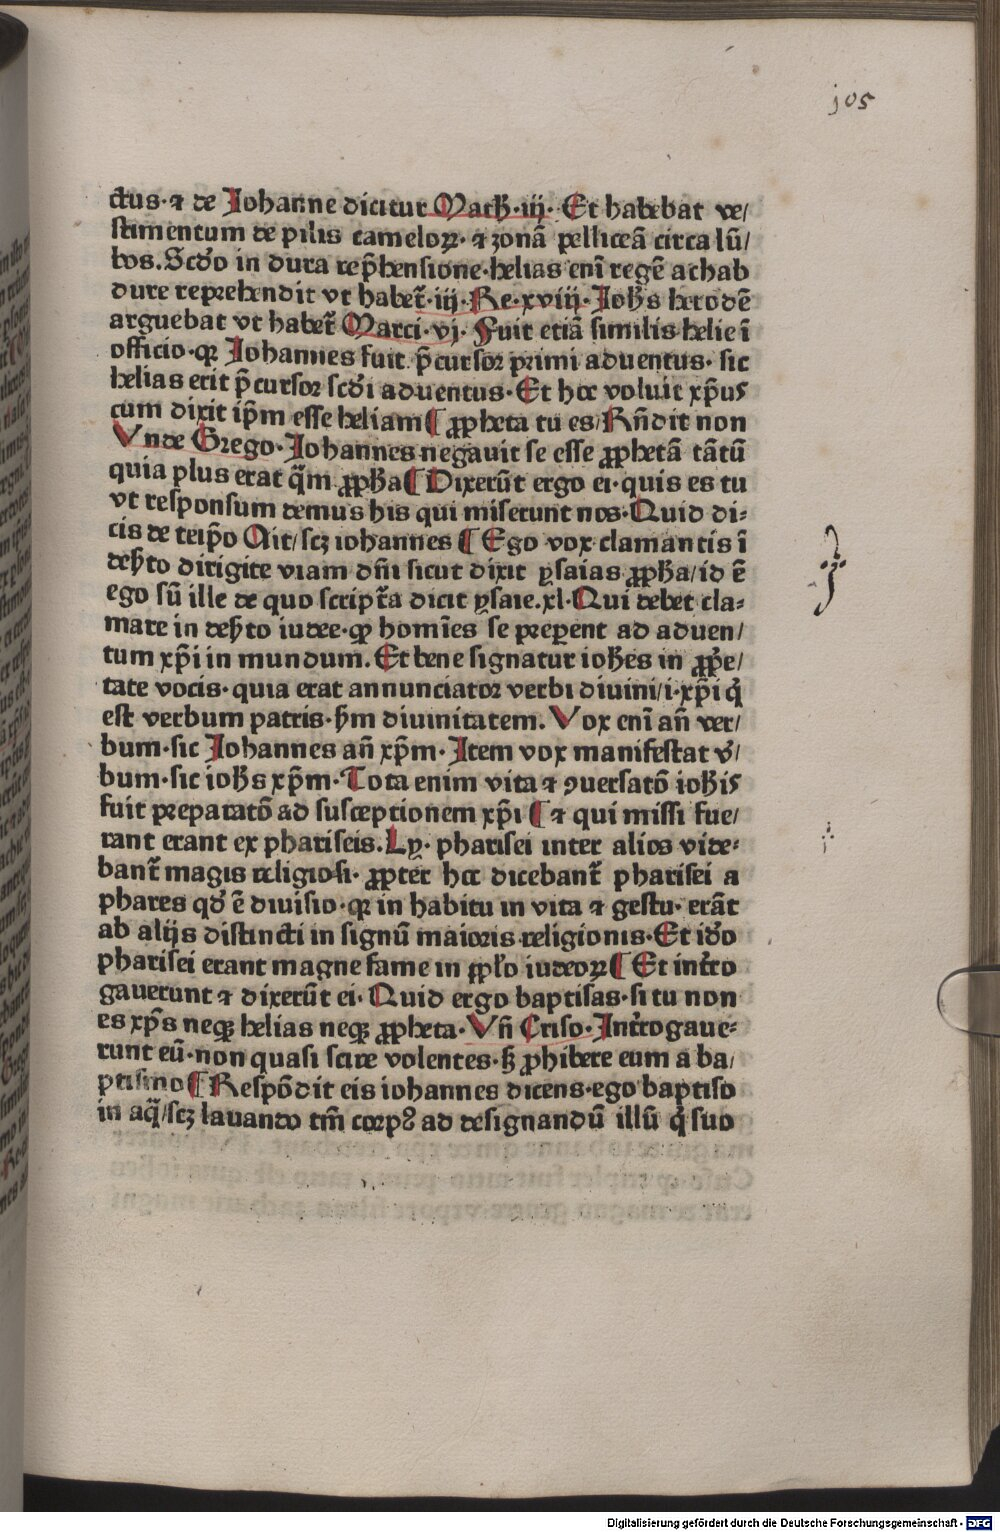 105
ctus·⁊ de Johanne dicitur Math̄·iij·Et habebat ve/
stimentum de pilis cameloꝝ·⁊ zonā pelliceā circa lū/
bos. Scďo in dura rep̄hensione·helias eni̅ regē achab
dure reprehendit vt habet᷑·iij·Re·xviij·Joh̄s herodē
arguebat vt habet᷑ Marci·vj·Fuit etiā similis helie ī
officio·qꝛ Johannes fuit p̄cursor primi aduentus·sic
helias erit p̄cursor scďi aduentus·Et hoc voluit xp̄us
cum dixit ip̄m esse heliam ¶ ꝓpheta tu es/Rn̄dit non
Vnde Grego·Johannes negauit se esse ꝓphetā tātū
quia plus erat q̄m ꝓph̄a ¶ Dixerūt ergo ei·quis es tu
vt responsum demus his qui miserunt nos·Quid di⸗
cis de teip̄o Ait/scꝫ iohannes ¶ Ego vox clamantis ī
deh̄to dirigite viam dn̄i sicut dixit ysaias ꝓph̄a/id ē
ego sū ille de quo script᷑a dicit ysaie.xl·Qui debet cla⸗
mare in deh̄to iudee·ꝙ homi̅es se preperent ad aduen/
tum xp̄i in mundum. Et bene signatur ioh̄es in ꝓp̄e/
tate vocis·quia erat annunciator verbi diuini/i·xp̄i q̇
est verbum patris·h̄m diuinitatem. Vox eni̅ an̄ ver/
bum·sic Johannes an̄ xp̄m·Item vox manifestat v̄/
bum·sic ioh̄s xp̄m·Tota enim vita ⁊ ꝯuersatō ioh̄is
fuit preparatō ad susceptionem xp̄i ¶ ⁊ qui missi fue/
rant erant ex phariseis. Ly·pharisei inter alios vide⸗
bant᷑ magis religiosi·ꝓpter hoc dicebant᷑ pharisei a
phares qď ē diuisio·qꝛ in habitu in vita ⁊ gestu·erāt
ab alijs distincti in signū maioris religionis·Et iďo
pharisei erant magne fame in ꝓpl̄o iudeoꝝ ¶ Et int̄ro
gauerunt ⁊ dixerūt ei·Quid ergo baptisas·si tu non
es xp̄s neqꝫ helias neqꝫ ꝓpheta·Vn̄ Criso·Int̄rogaue⸗
runt eū·non quasi scire volentes·sꝫ ꝓhibere eum a ba/
ptismo ¶ Respōdit eis iohannes dicens·ego baptiso
in aq̄/scꝫ lauando tm̄ corpꝰ ad designandū illū q̇ suo
Digitalisierung gefördert durch die Deutsche Forschungsgemeinschaft - DFG